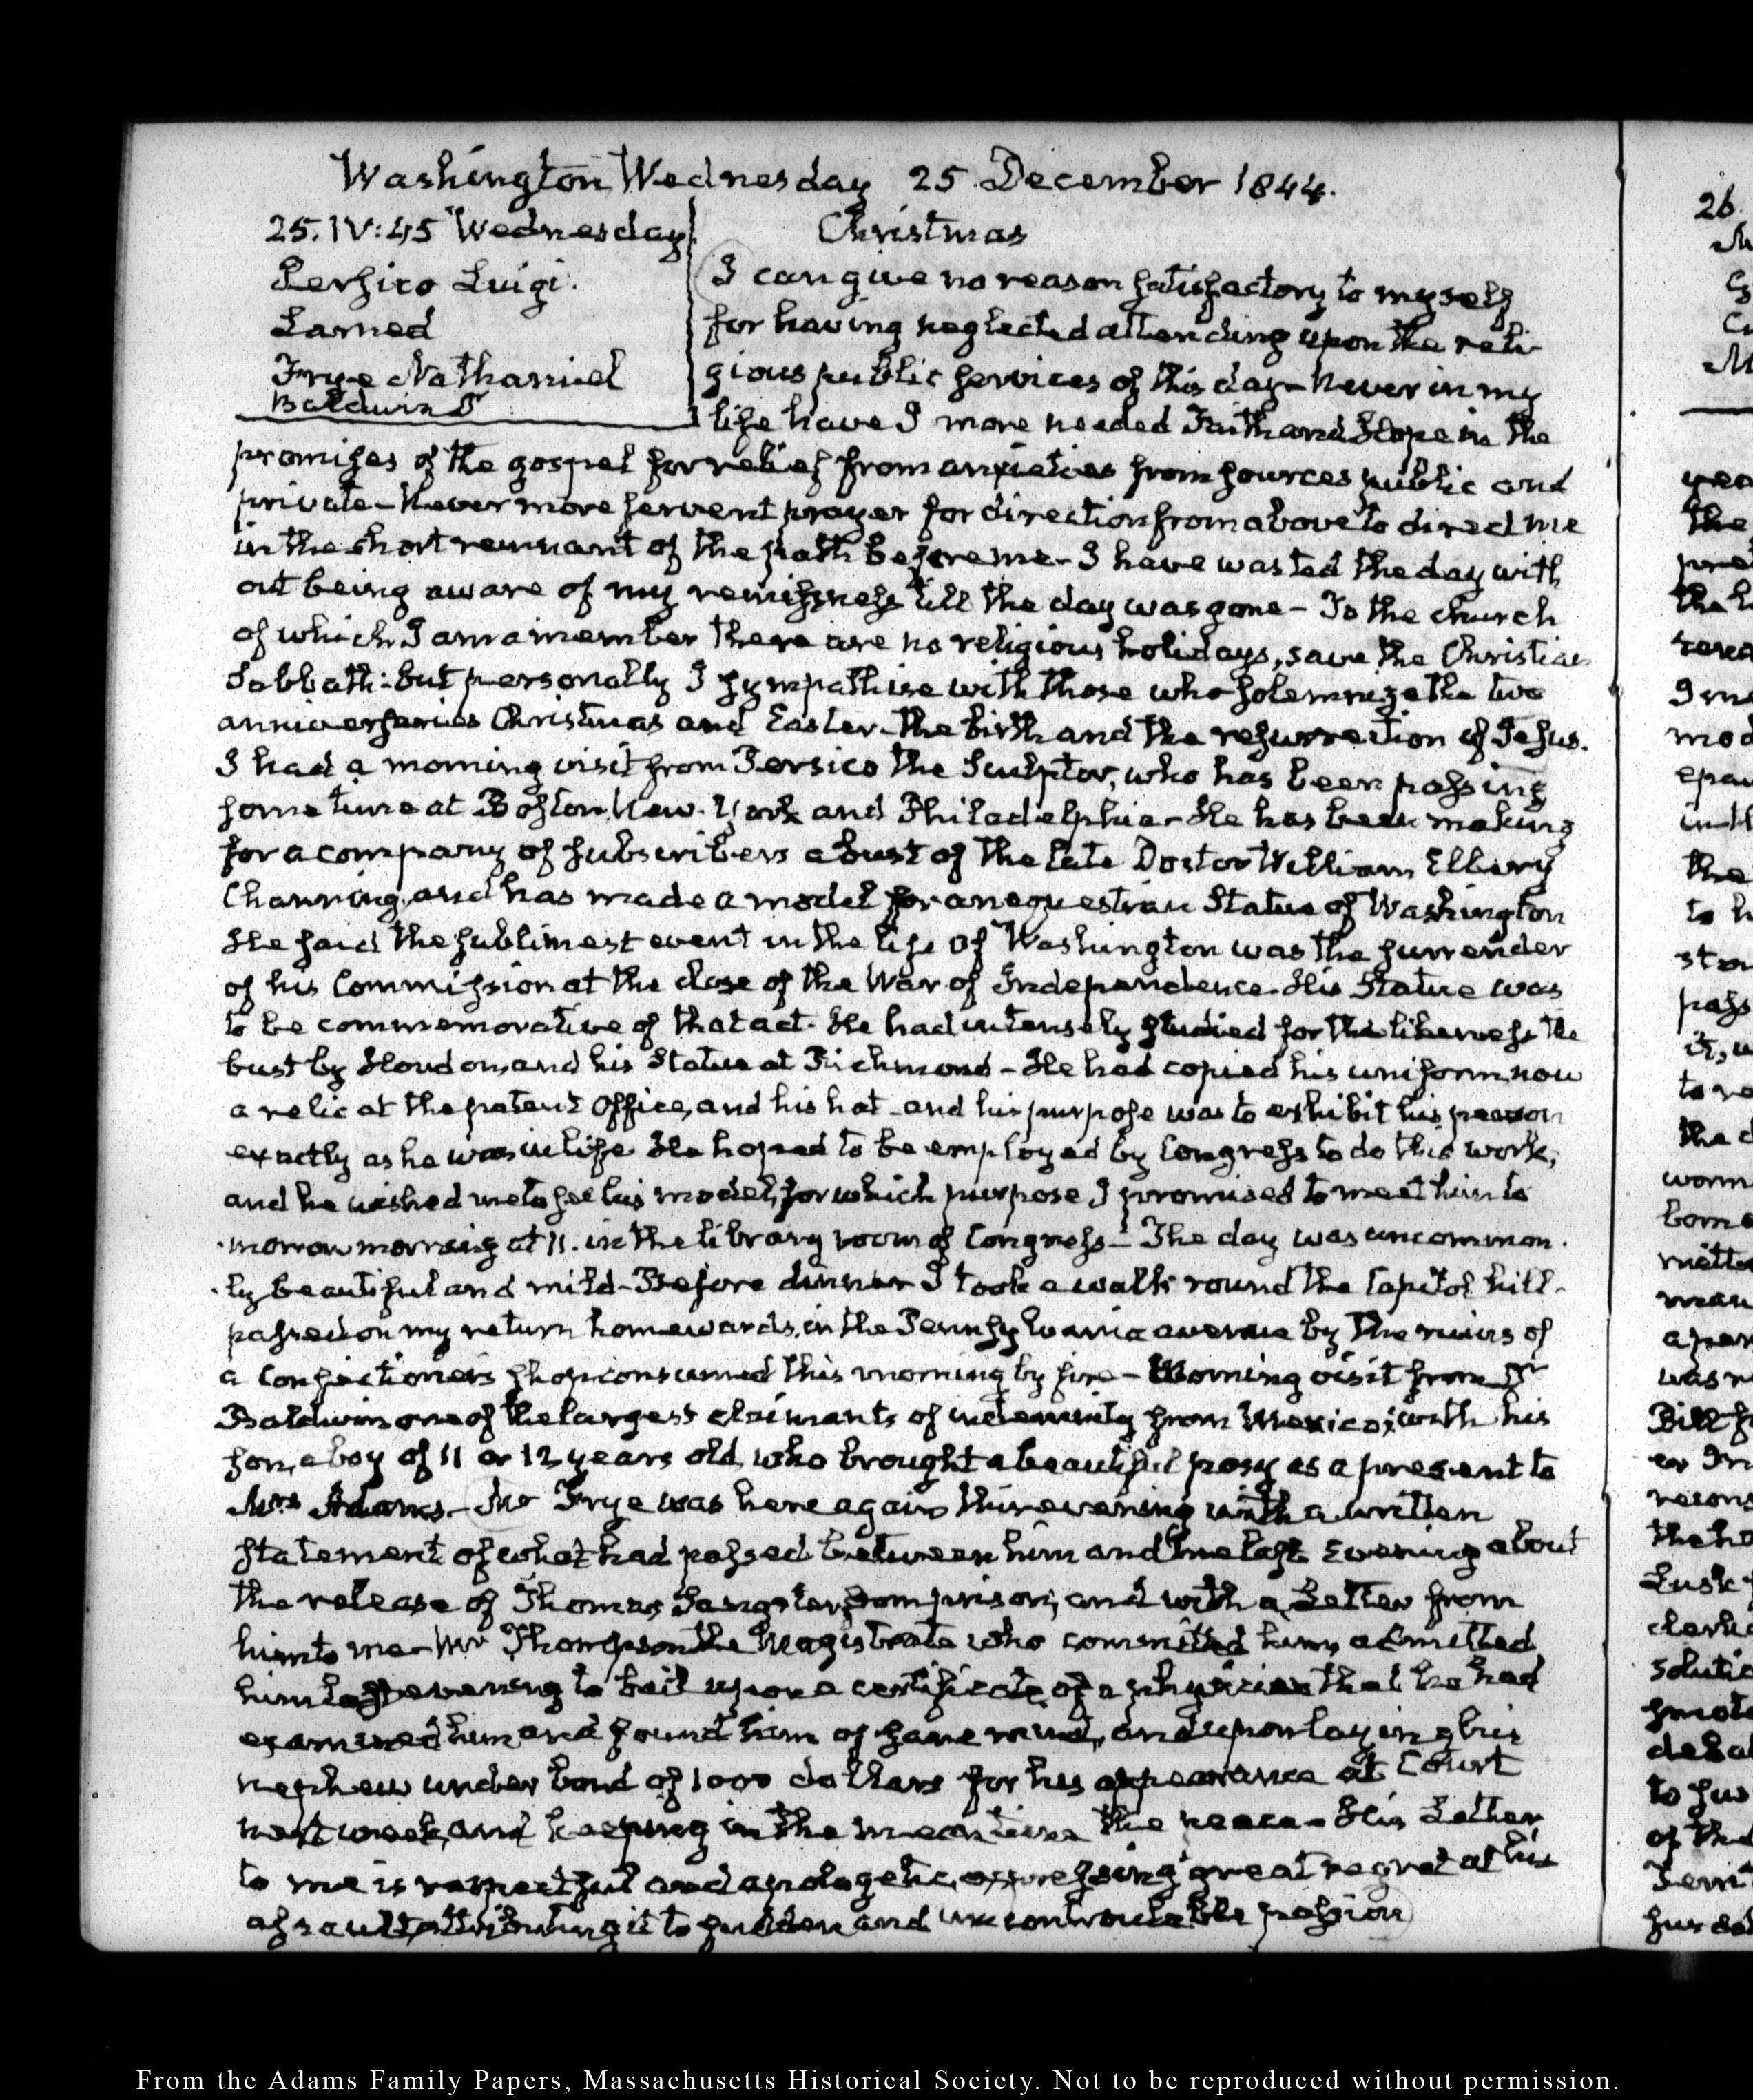 Washington Wednesday 25. December 1844.
25. IV:45 Wednesday
Persico Luigi.
Larned
Frye Nathaniel
Baldwin Dr
Christmas
I can give no reason satisfactory to myself
for having neglected attending upon the reli-
gious public services of this day - Never in my
life have I more needed Faith and Hope in the
promises of the gospel for relief from anxieties from sources public and
private - Never more fervent prayer for direction from above to direct me
in the short remnant of the path before me - I have wasted the day with
out being aware of my remissness till the day was gone - In the church
of which I am a member there are no religious holidays, save the Christian
Sabbath: but personally I sympathise with those who solemnize the two
anniversaries Christmas and Easter - the birth and the resurrection of Jesus.
I had a morning visit from Persico the Sculptor, who has been passing
some time at Boston, New-York and Philadelphia - He has been making
for a company of subscribers a bust of the late Doctor William Ellery
Channing, and has made a model for an equestrian Statue of Washington
He said the sublimest event in the life of Washington was the surrender
of his Commission at the close of the War of Independence - His Statue was
to be commemorative of that act - He had intensely studied for the likeness the
bust by Houdon, and his Statue at Richmond - He had copied his uniform, now
a relic at the patent Office, and his hat - and his purpose was to exhibit his person
exactly as he was in life. He hoped to be employed by Congress to do this work,
and he wished me to see his model, for which purpose I promised to meet him to
morrow morning at 11. in the library room of Congress - The day was uncommon-
ly beautiful and mild - Before dinner I took a walk round the Capitol hill -
passed on my return homewards, in the Pennsylvania avenue by the ruins of
a Confectioner's shop consumed this morning by fire - Morning visit from Dr
Baldwin one of the largest claimants of indemnity from Mexico; with his
son, a boy of 11 or 12 years old, who brought a beautiful posy as a present to
Mrs Adams - Mr Frye was here again this evening with a written
statement of what had passed between him and me last Evening about
the release of Thomas Sangster from prison, and with a Letter from
him to me - Mr Thompson the Magistrate who committed him, admitted
him last evening to bail upon a certificate of a physician that he had
examined him and found him of sane mind, and upon laying his
nephew under bond of 1000 dollars for his appearance at Court
next week, and keeping in the meantime the peace - His Letter
to me is respectful and apologetic, expressing great regret at his
assault, attributing it to sudden and uncontroulable passion
26.
From the Adams Family Papers, Massachusetts Historical Society. Not to be reproduced without permission.